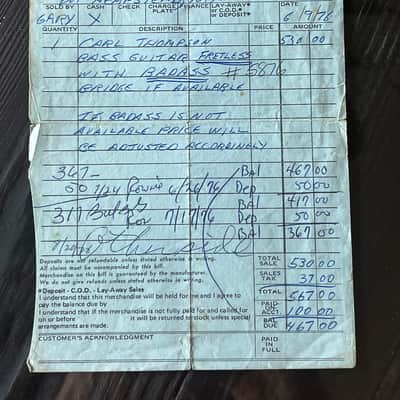 SOLD BY CASH CHECK CHARGE PLATE FINANCE LAY-AWAY C.O.D. or DEPOSIT* DATE
GARY X 6/9/76
QUANTITY DESCRIPTION PRICE AMOUNT
1 CARL THOMPSON 530 00
BASS GUITAR FRETLESS
WITH BADASS #5876
BRIDGE IF AVAILABLE
IF BADASS IS NOT
AVAILABLE PRICE WILL
BE ADJUSTED ACCORDINGLY
367- Bal 467 00
50 7/24 6/26/76 Dep 50 00
BAl 417 00
317 7/17/76 Dep 50 00
BAl 367 00
Deposits are not refundable unless stated otherwise in writing.
All claims must be accompanied by this bill.
Merchandise on this bill is guaranteed by the manufacturer.
We do not give refunds unless stated otherwise in writing.
TOTAL SALE 530 00
SALES TAX 37 00
TOTAL 567 00
*Deposit - C.O.D. - Lay-Away Sales
I understand that this merchandise will be held for me and I agree to
pay the balance due by
I understand if the merchandise is not fully paid for and called for
on or before it will be returned to stock unless special
arrangements are made.
PAID ON ACCT. 100 00
BAL. DUE 467 00
CUSTOMER'S ACKNOWLEDGMENT
PAID IN FULL